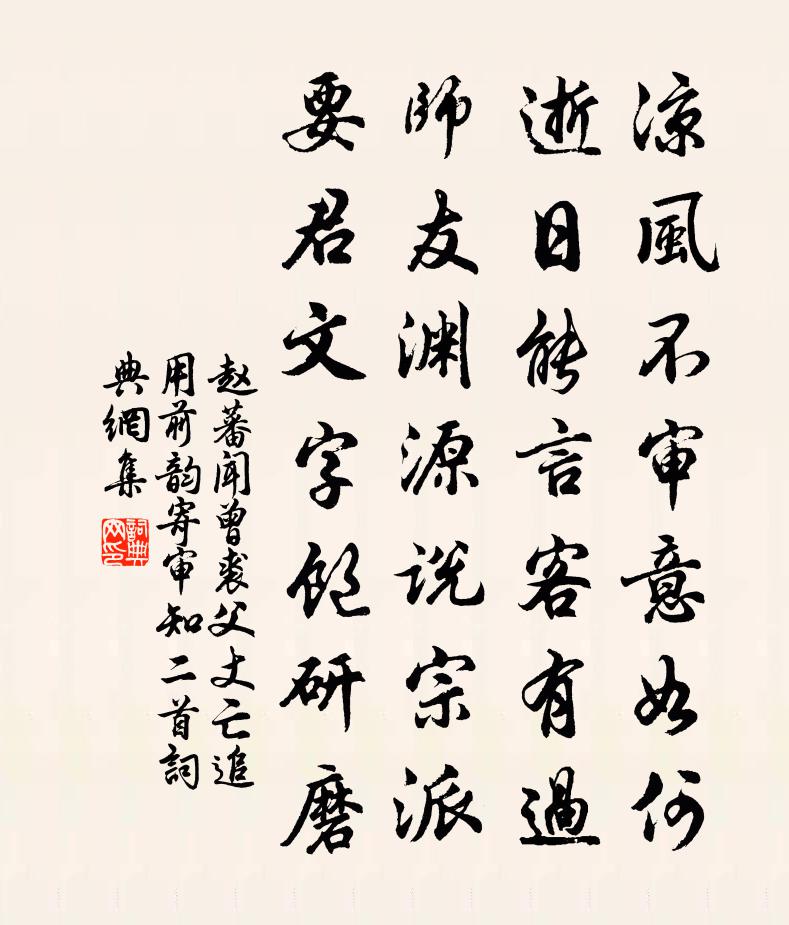 凉風不审意如何
逝日能言客有過
師友渊源说宗派
要君文字飽研磨
赵蕃闻曾裘父丈亡追
用前韵寄审知二首詞
典網集
詞典网印